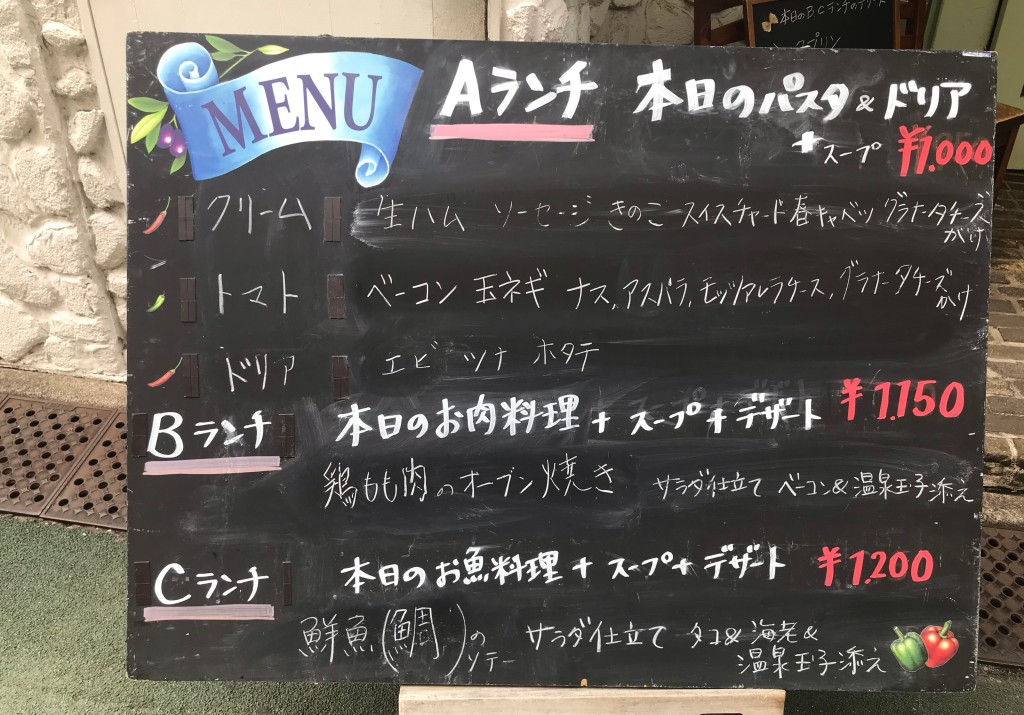 本日のBCランチのデザート
プリン
MENU
Aランチ 本日のパスタ&ドリア
+スープ ¥1.000
クリーム 生ハム ソーセージ きのこ スイスチャード 春キャベツ グラナータチーズ
がけ
トマト ベーコン 玉ネギ ナス,アスパラ,モッツァレラチーズ,グラナータチーズ
かけ
ドリア エビ ツナ ホタテ
Bランチ 本日のお肉料理+スープ+デザート ¥1.150
鶏もも肉のオーブン焼き サラダ仕立て ベーコン&温泉玉子添え
Cランチ 本日のお魚料理+スープ+デザート ¥1.200
鮮魚(鯛)の
ソテー サラダ仕立て タコ&海老&
温泉玉子添え